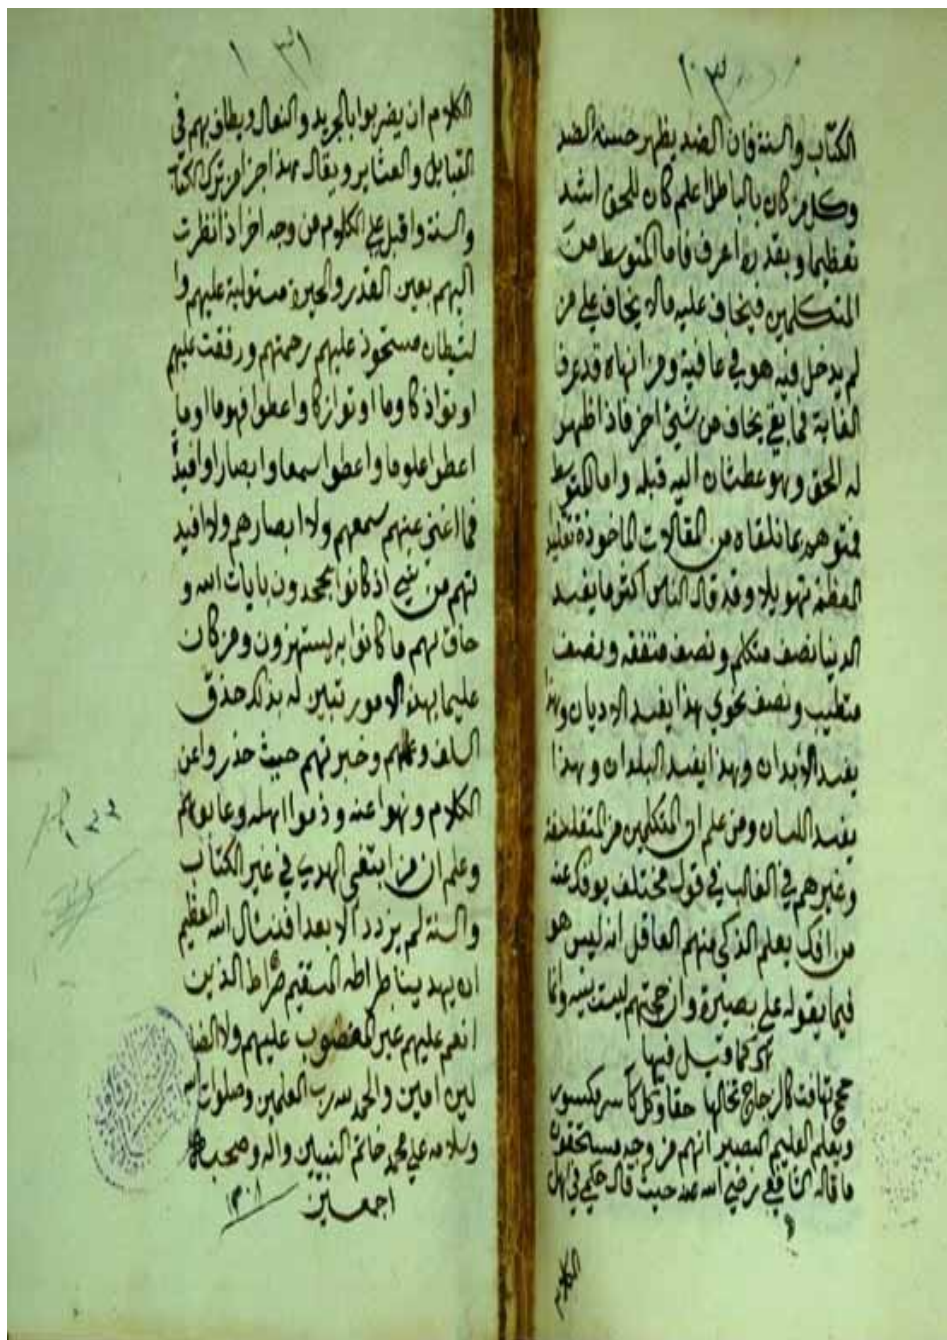 ١٠٣
الكتاب والسنة فان الضد يظهر حسنه الضد
وكل من كان بالباطل اعلم كان للحق اشد
تعظيما وبقدره اعرف فاما المتوسط من
المتكلمين فيخاف عليه مالا يخاف على من
لم يدخل فيه هو في عافية ومن انهاه قد عرف
الغاية فما بقي يخاف من شيئ اخر فاذا ظهر
له الحق وهو عطشان اليه قبله واما المتوسط
فمتوهم بما تلقاه من المقالات الماخوذة تقليد
المعظمه تهويلا وقد قال الناس اكثر ما يفسد
الدنيا نصف متكلم ونصف متفقه ونصف
متطبب ونصف نحوي هذا يفسد الاديان وهذا
يفسد الأبدان وهذا يفسد البلدان وهذا
يفسد اللسان ومن علم ان المتكلمين من المتفلسفة
وغيرهم في الغالب في قول مختلف يوفك عنه
من افك يعلم الذكي منهم العاقل انه ليس هو
فيما يقوله على بصيرة وان حجتهم ليست ببينه وانما
هي كما قيل فيها
حجج تهافت كالزجاج تخالها حقا وكل كاسر مكسور
ويعلم العليم البصير انهم من وجه مستحقون
ما قاله الشافعي رضي الله عنه حيث قال حكمي في اهل
الكلام
١٣١
الكلام ان يضربوا بالجريد والنعال ويطاف بهم في
القبايل والعشاير ويقال هذا جزا من ترك الكتاب
والسنة واقبل على الكلام من وجه اخر اذا نظرت
اليهم بعين القدر والحيرة مستولية عليهم وا
لشيطان مستحوذ عليهم رحمتهم ورفقت عليهم
اوتوا ذكا وما اوتوا زكا واعطوا فهوما وما
اعطوا علوما واعطوا سمعا وابصارا وافيدة
فما اغنى عنهم سمعهم ولا ابصارهم ولا افيد
تهم من شيى اذ كانوا يجحدون بايات الله و
حاق بهم ما كانوا به يستهزون ومن كان
عليما بهذه الامور تبين له بذلك حذق
السلف وعلمهم وخبرتهم حيث حذروا عن
الكلام ونهوا عنه وذموا اهله وعابوهم
وعلم ان من ابتغى الهدى في غير الكتاب
والسنة لم يزدد الا بعدا فنسال الله العظيم
ان يهدينا صراطه المستقيم صراط الذين
انعم عليهم غير المغضوب عليهم ولا الضا
لين امين والحمد لله رب العلمين وصلوات الله
وسلامه على محمد خاتم النبيين واله وصحبه
اجمعين ١٣٠٨